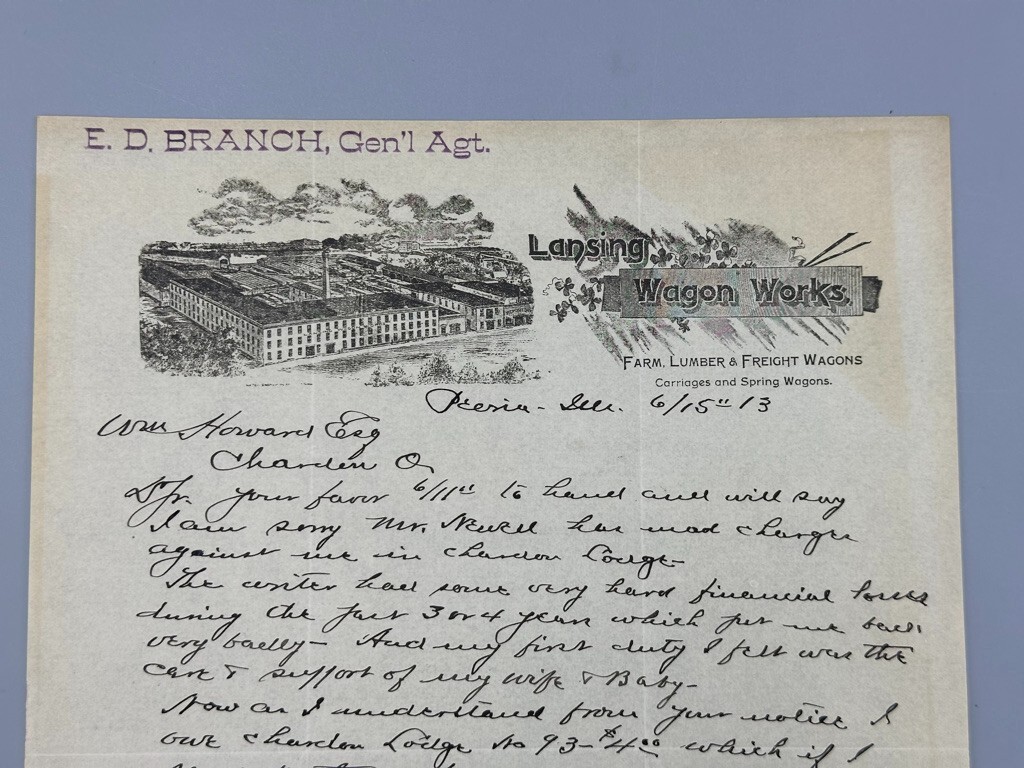 E. D. BRANCH, Gen'l Agt.
Lansing
Wagon Works.
FARM, LUMBER & FREIGHT WAGONS
Carriages and Spring Wagons.
Peoria - Ills. 6/15" 13
Wm Howard Esq
Chardon O
your favor 6/11" to hand and will say
I am sorry Mr. Newell has mad charges
against me in Chardon Lodge -
The writer had some very hard financial losses
during the past 3 or 4 years which put me back
very badly - And my first duty I felt was the
care & support of my wife & Baby -
Now as I understand from your notice I
owe Chardon Lodge No 93 - $4.00 which if I